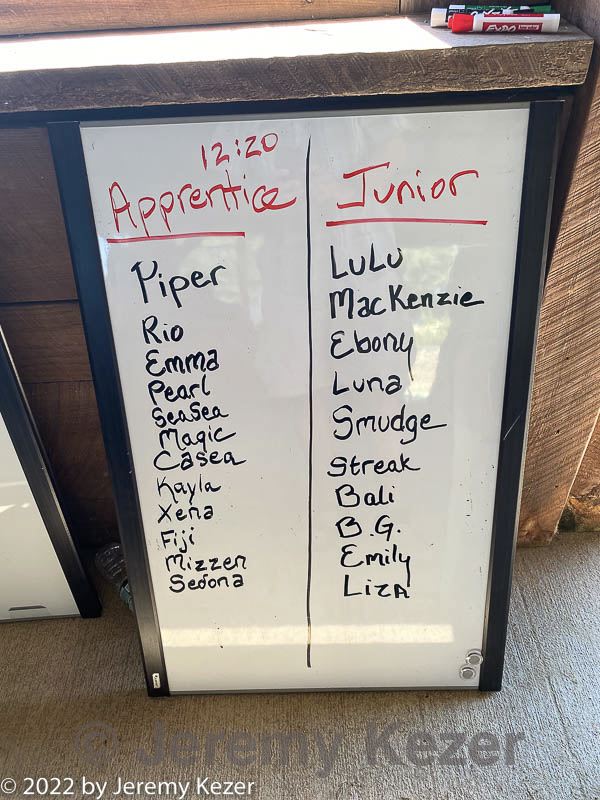 EXPO
12:20
Apprentice
Piper
Rio
Emma
Pearl
SeaSea
Magic
Casea
Kayla
Xena
Fiji
Mizzen
Sedona
Junior
LuLu
MacKenzie
Ebony
Luna
Smudge
Streak
Bali
B.G.
Emily
LizA
© Jeremy Kezer
© 2022 by Jeremy Kezer